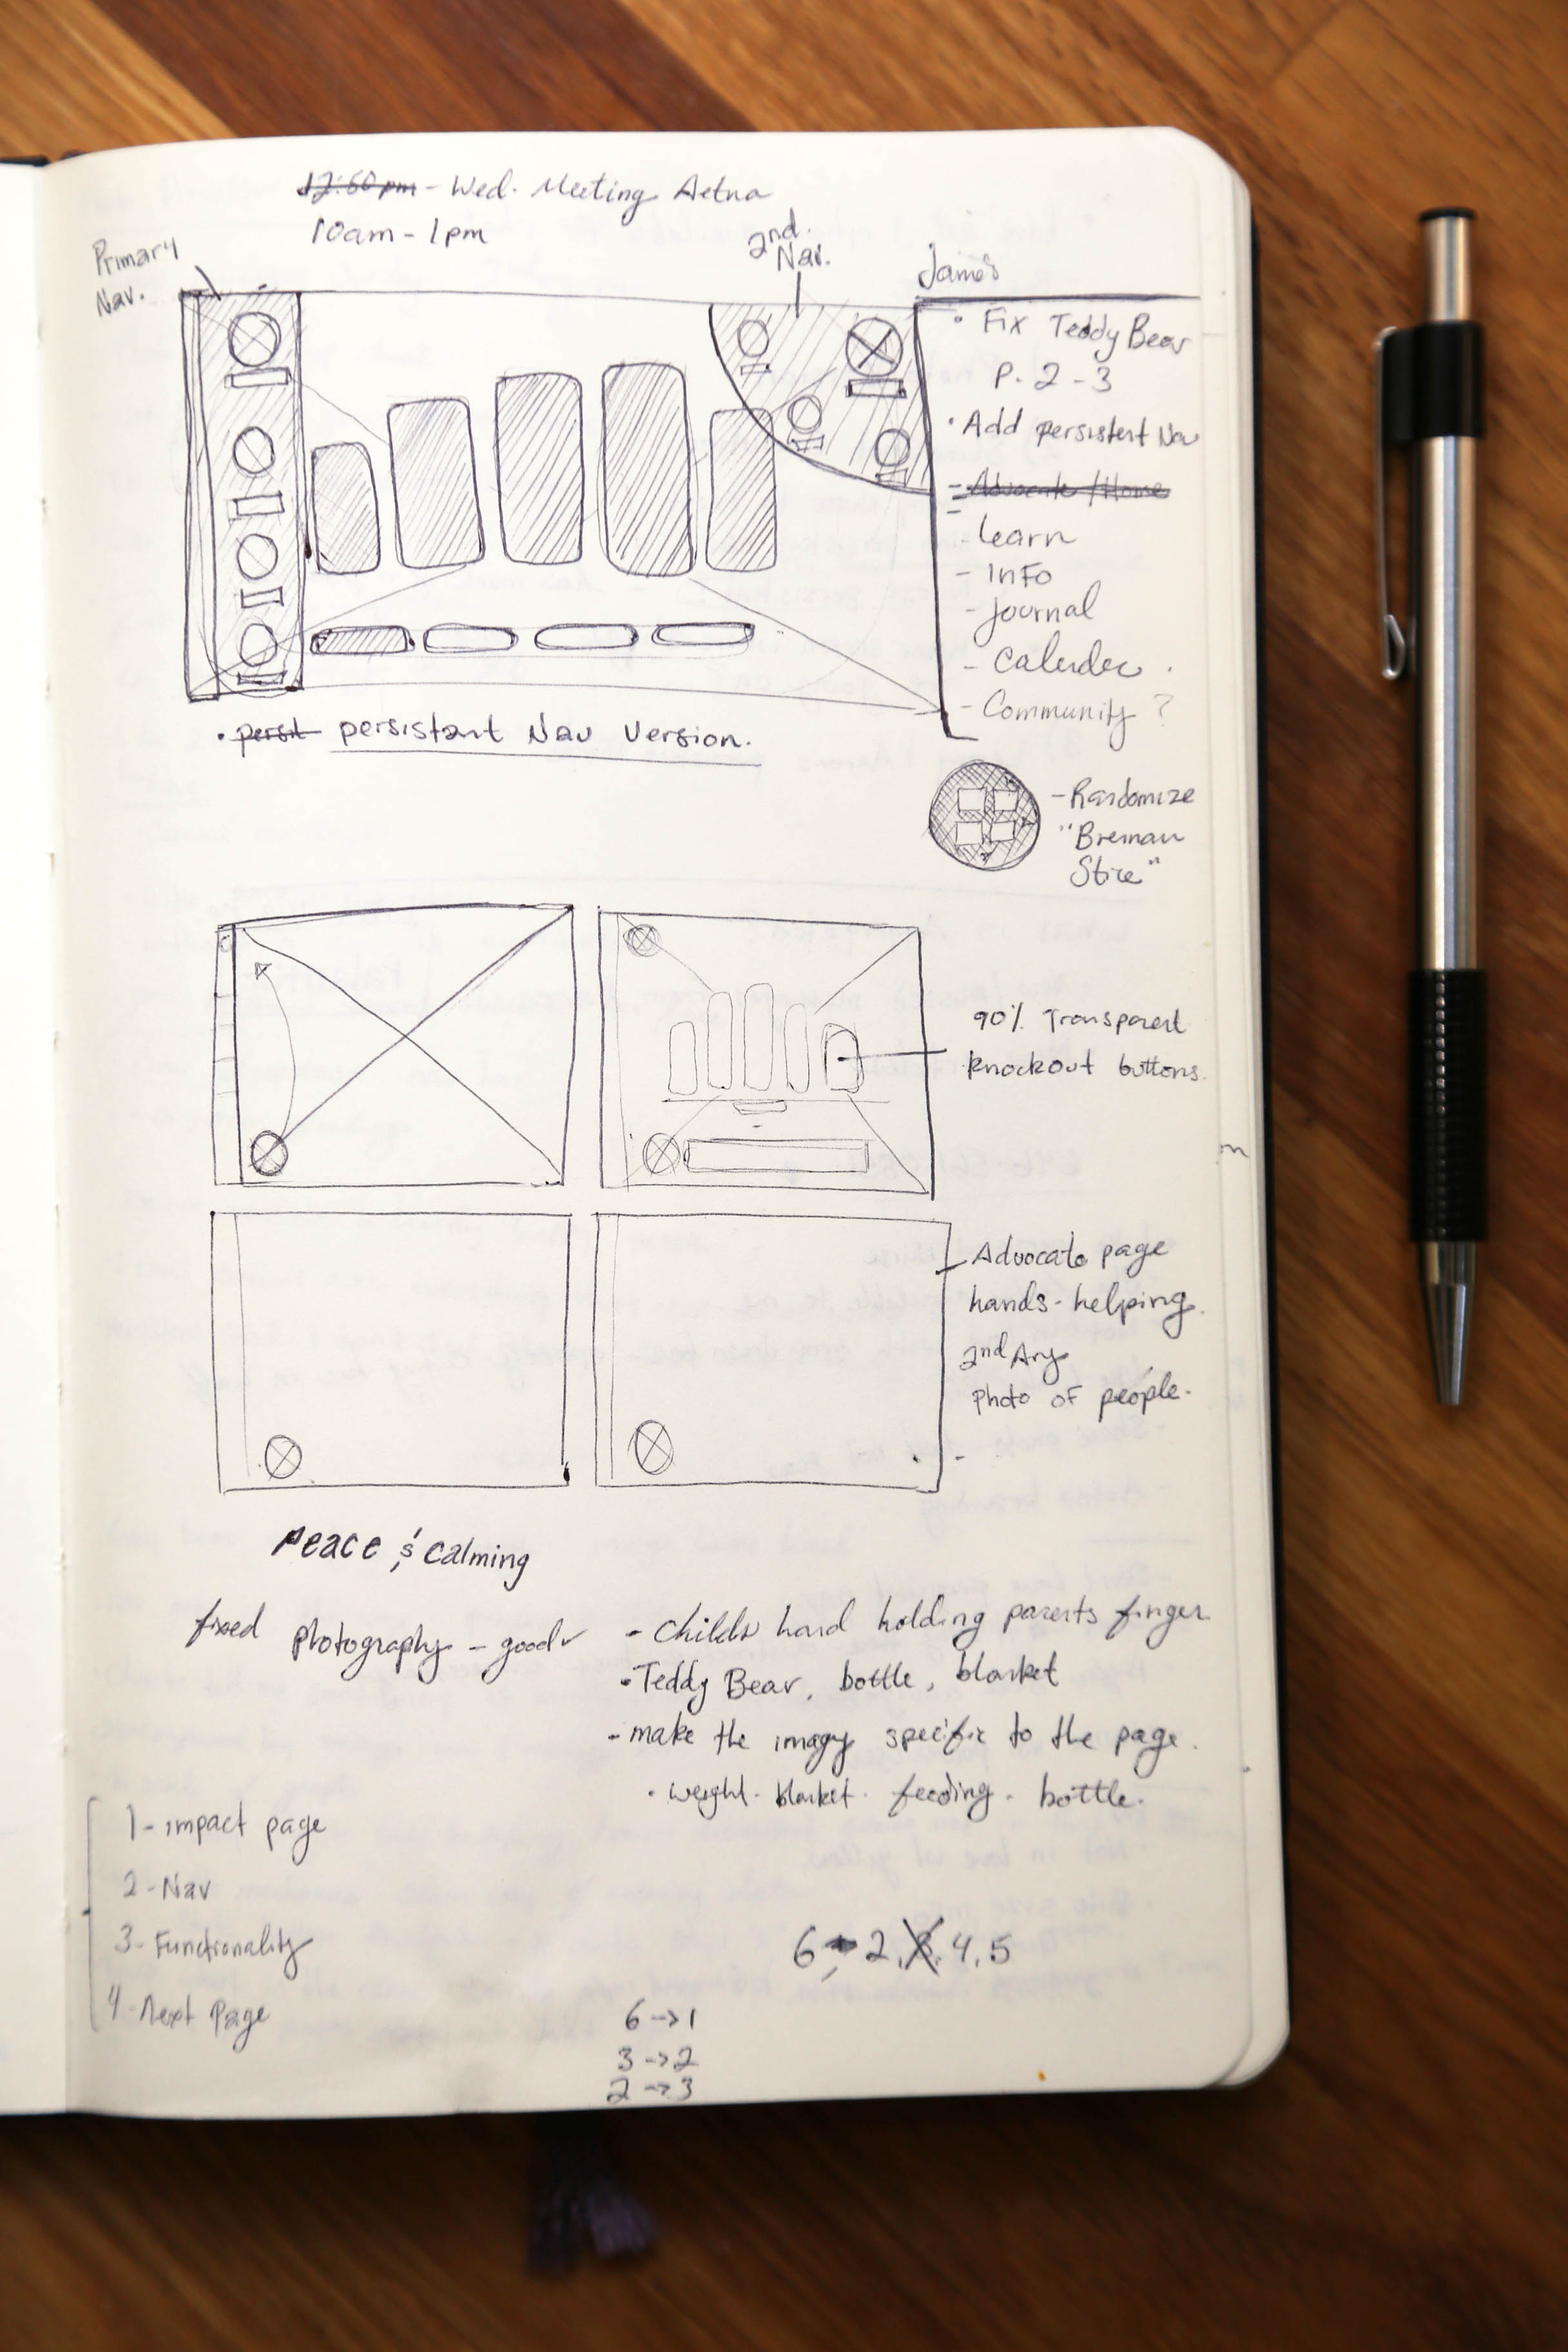 12:60pm - Wed. Meeting Aetna
10am - 1pm
Primary
Nav.
2nd.
Nav.
James
• Fix Teddy Bear
P. 2 - 3
• Add persistent Nav
- Advocate / Home
- Learn
- Info
- Journal
- Calender
- Community ?
• persit persistant Nav Version.
- Randomize
"Brennan
90% Transparent
knockout buttons.
Advocate page
hands - helping
2nd Ary
photo of people.
Peace & Calming
fixed photography - good
- Childs hand holding parents finger
• Teddy Bear, bottle, blanket
- make the imagy specific to the page.
• weight - blanket. feeding - bottle.
1 - impact page
2 - Nav
3 - Functionality
4 - Next Page
6, 2, 3, 4, 5
6 -> 1
3 -> 2
2 -> 3